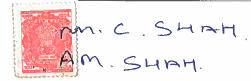 M. C. SHAH.
A M. SHAH.